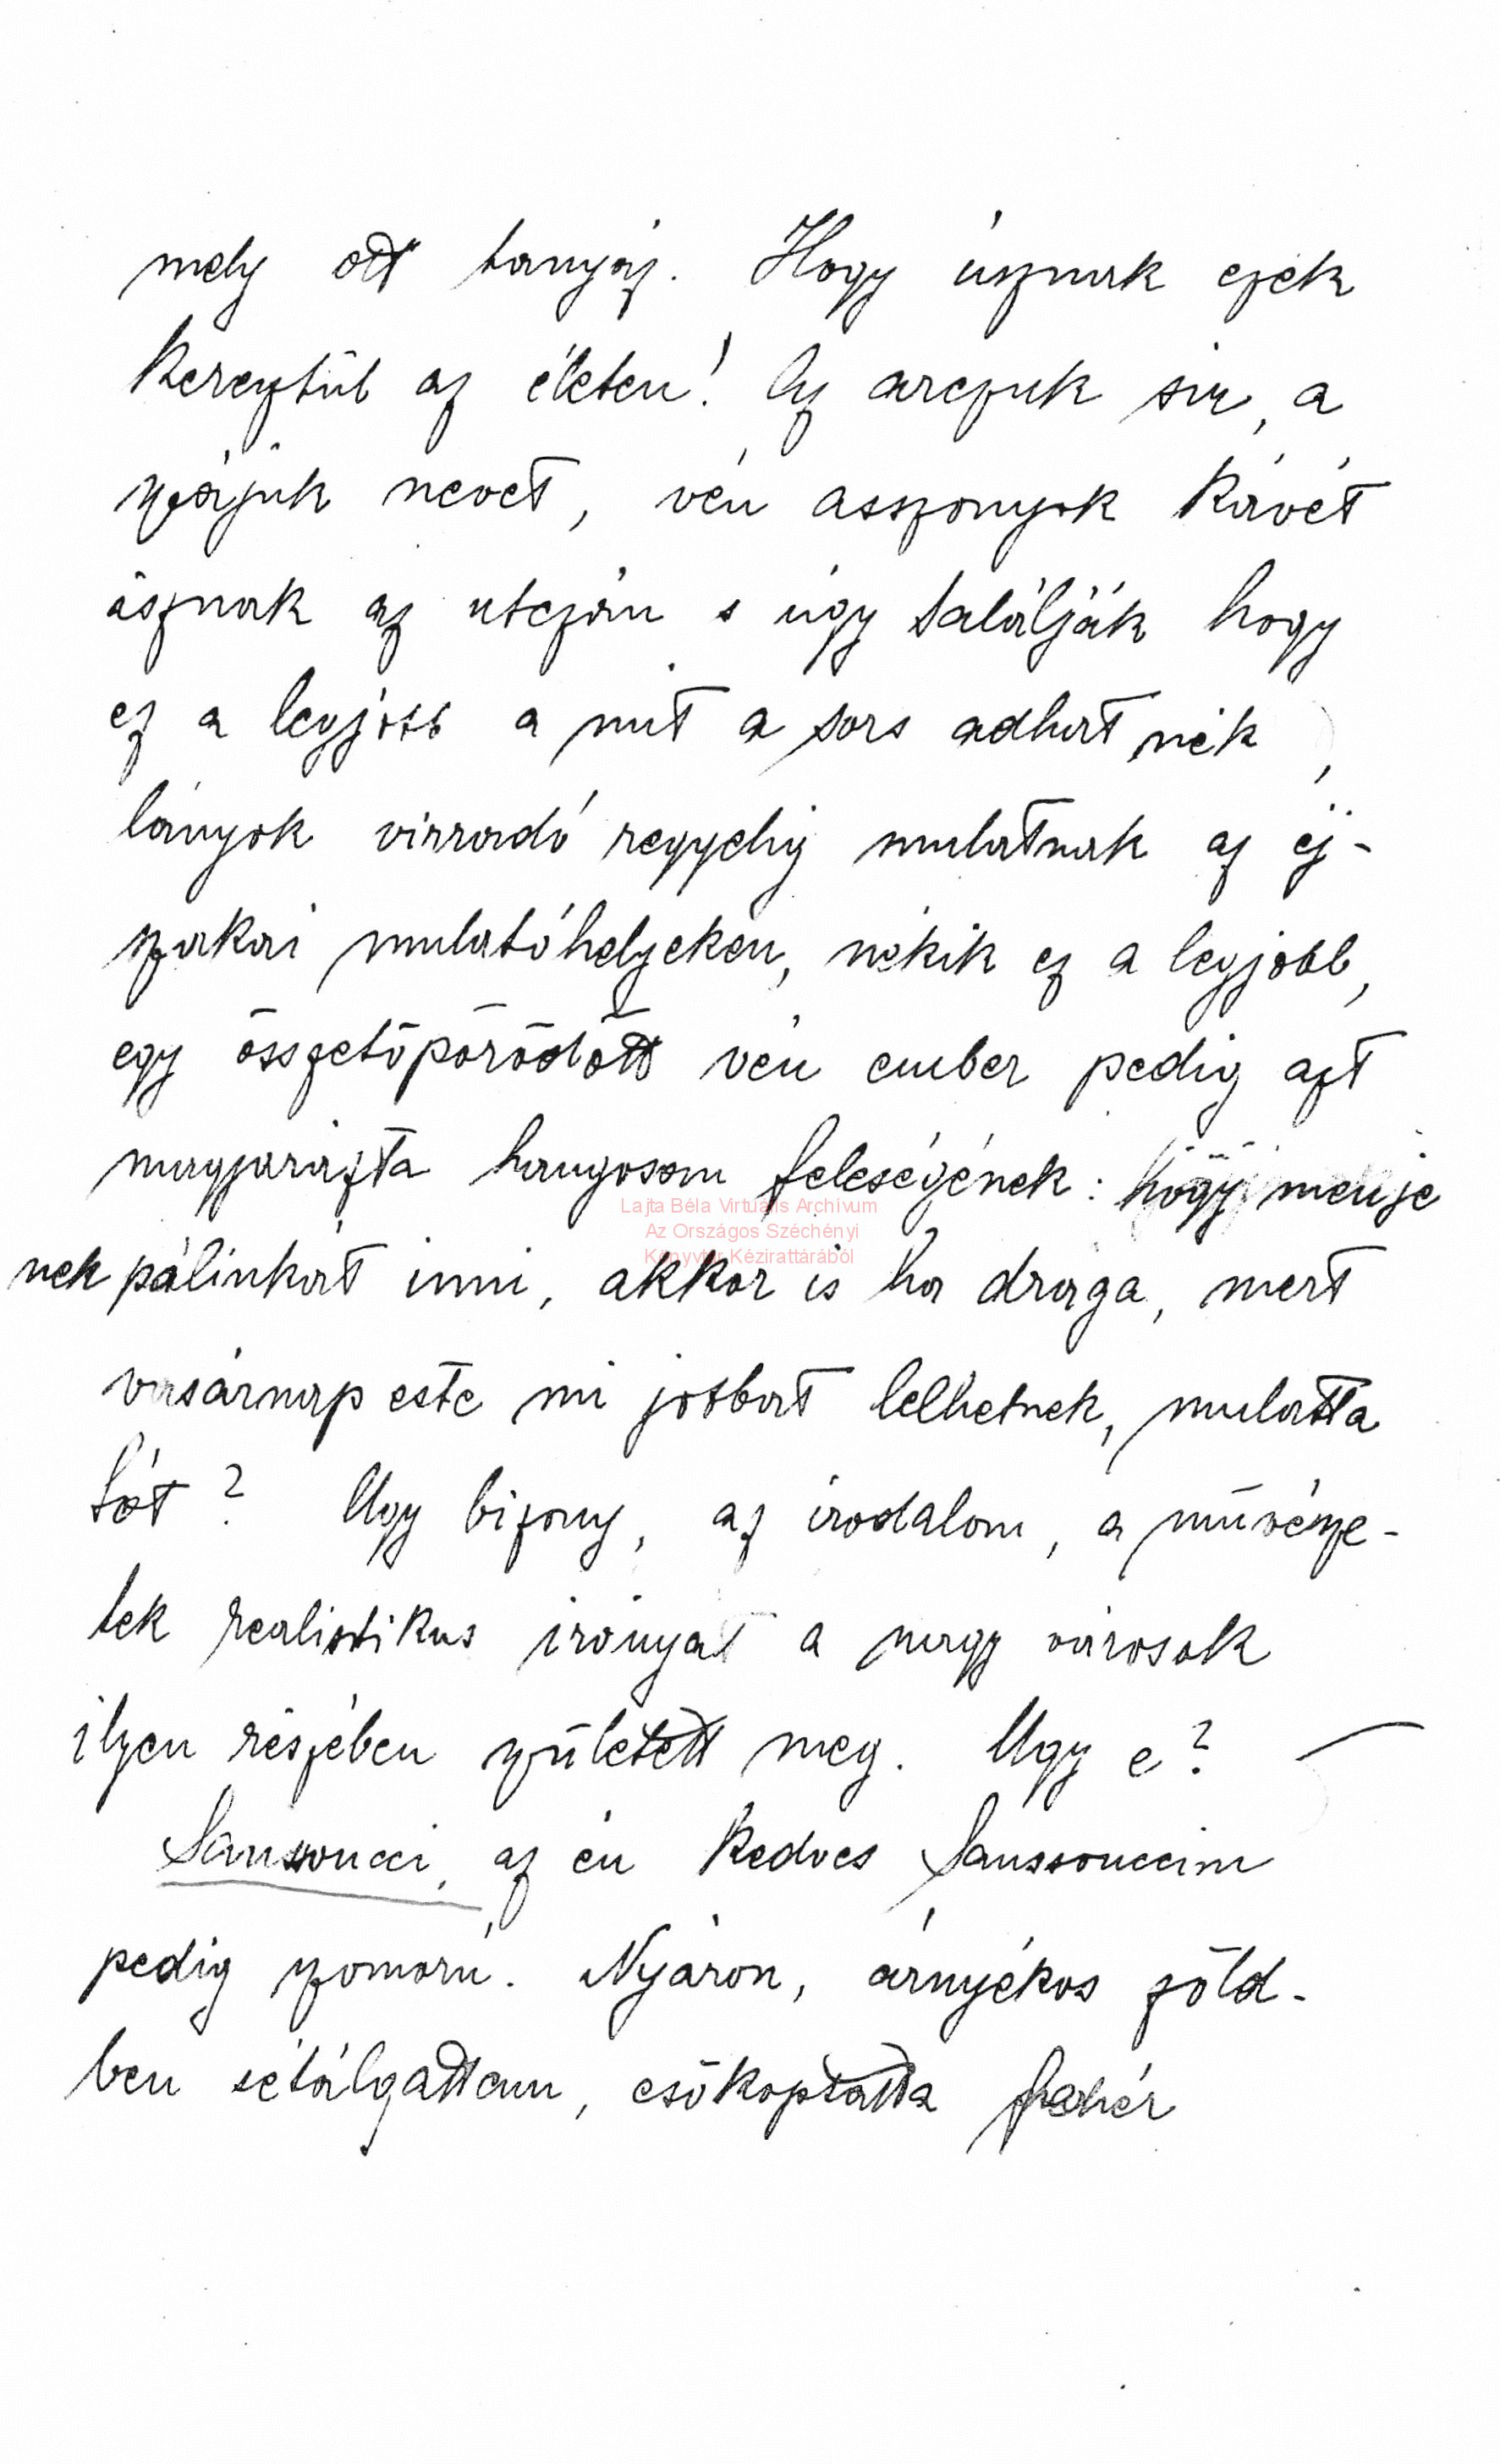 mely ott tanyáz. Hogy úsznak ezek
keresztül az életen! Az arczuk sir, a
szájuk nevet, vén asszonyok kávét
isznak az utczán s úgy találják hogy
ez a legjobb a mit a sors adhat nék,
lányok virradó reggelig mulatnak az éj-
szakai mulatóhelyeken, nékik ez a legjobb,
egy összetöpörödött vén ember pedig azt
magyarázta hangosan feleségének: hogy menje
nek pálinkát inni, akkor is ha drága, mert
vasárnap este mi jobbat lelhetnek, mulatta
tót? Ugy bizony, az irodalom, a művésze-
tek realistikus irányat a nagy városok
ilyen részében született meg. Ugy e?
Sanssoucci, az én kedves Sanssouccim
pedig szomorú. Nyáron, árnyékos zöld-
ben sétálgattam, esőkoptatta fehér
Lajta Béla Virtuális Archívum
Az Országos Széchényi
Könyvtár Kézirattárából